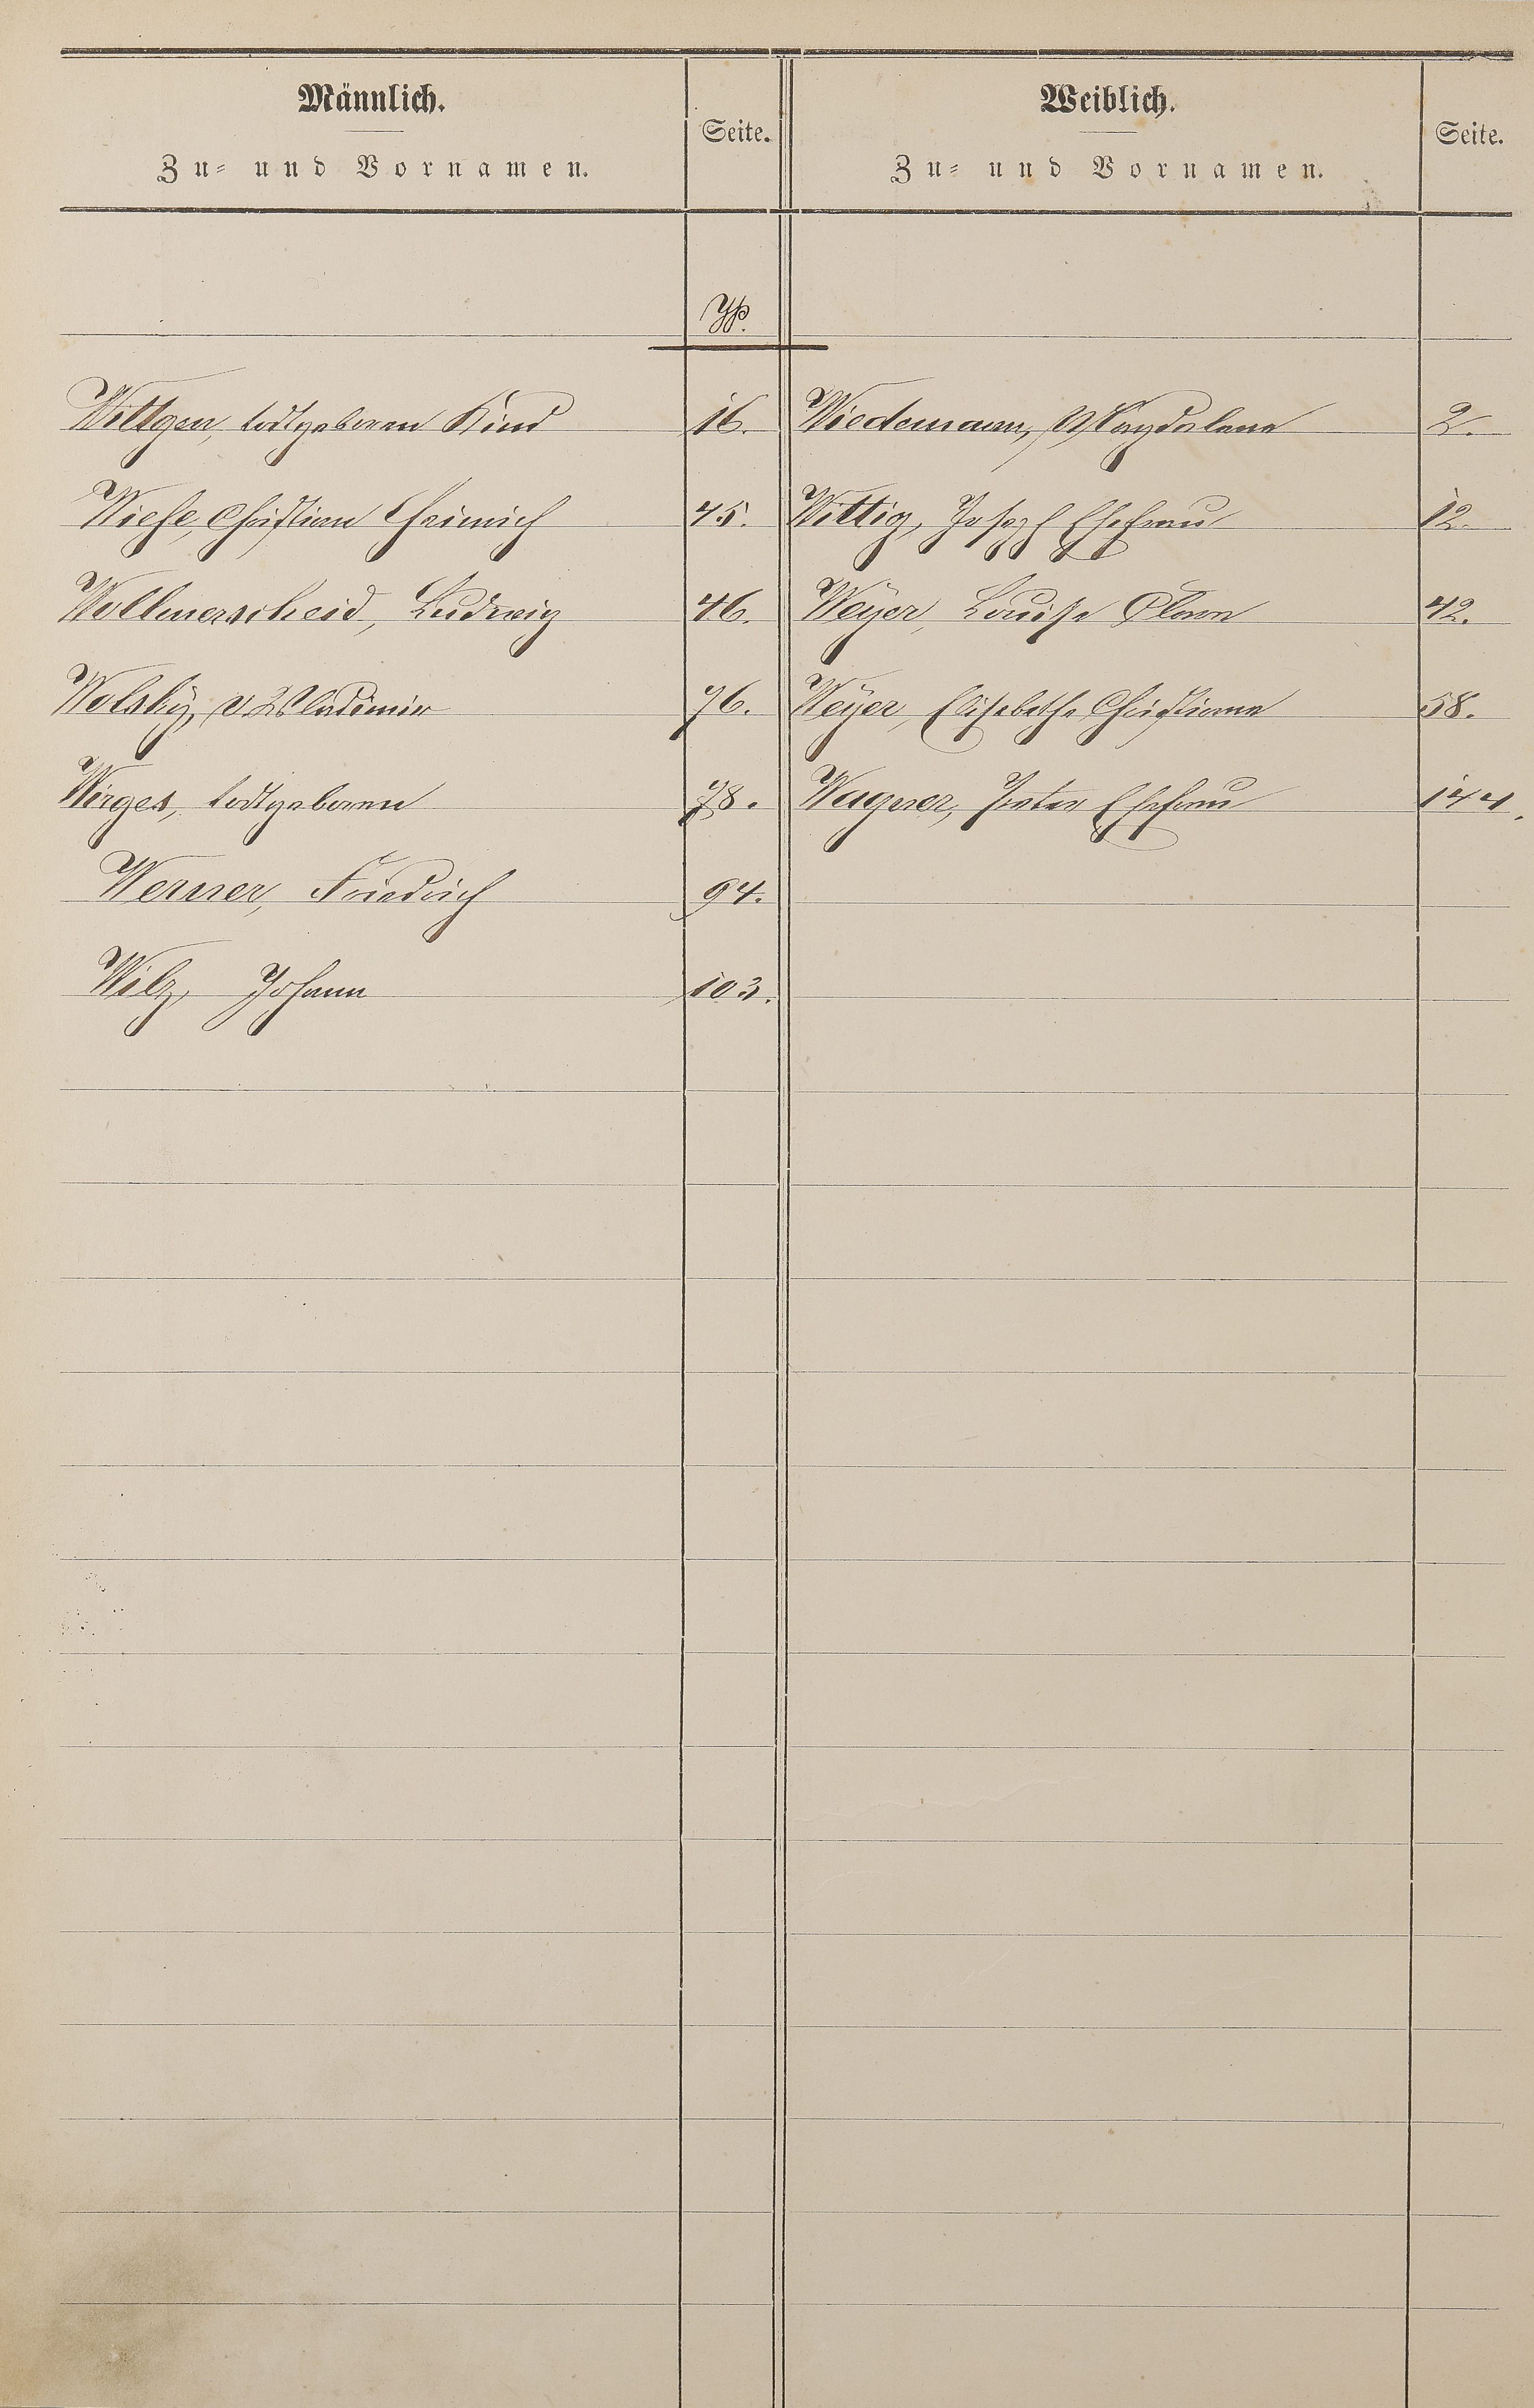 Männlich.
Zu- und Vornamen.
Seite.
Weiblich.
Zu- und Vornamen.
Seite.
W.
Wittgen, todtgeboren Kind 16. Wiedemann, Magdalena 2.
Wiehe, Christian Heinrich 45. Wittig, Joseph Ehefrau 12.
Wollmerscheid, Ludwig 46. Weyer, Louise 42.
Wolsky, v Wladimir 76. Weyer, Elisabethe Christiane 58.
Wirges, todtgeboren 78. Wagner, Peter Ehefrau 144.
Werner, Friedrich 94.
Wilz, Johann 103.